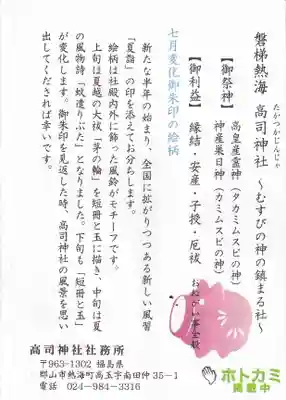 磐梯熱海 高司神社 ～むすびの神の鎮まる社～
たかつかじんじゃ
【御祭神】 高皇産霊神（タカミムスビの神）
神産巣日神（カミムスビの神）
【御利益】 縁結・安産・子授・厄祓 おねがい事全般
七月変化御朱印の絵柄
新たな半年の始まり、全国に拡がりつつある新しい風習
「夏詣」の印を添えてお分ちします。
絵柄は社殿内外に飾った風鈴がモチーフです。
上旬は夏越の大祓「茅の輪」を短冊と玉に描き、中旬は夏
の風物詩「蚊遣りぶた」となりました。下旬も「短冊と玉」
が変化します。御朱印を見返した時、高司神社の風景を思い
出してくだされば幸いです。
高司神社社務所
〒963-1302 福島県
郡山市熱海町高玉字南田仲35−1
電話 024-984-3316
ホトカミ
掲載中